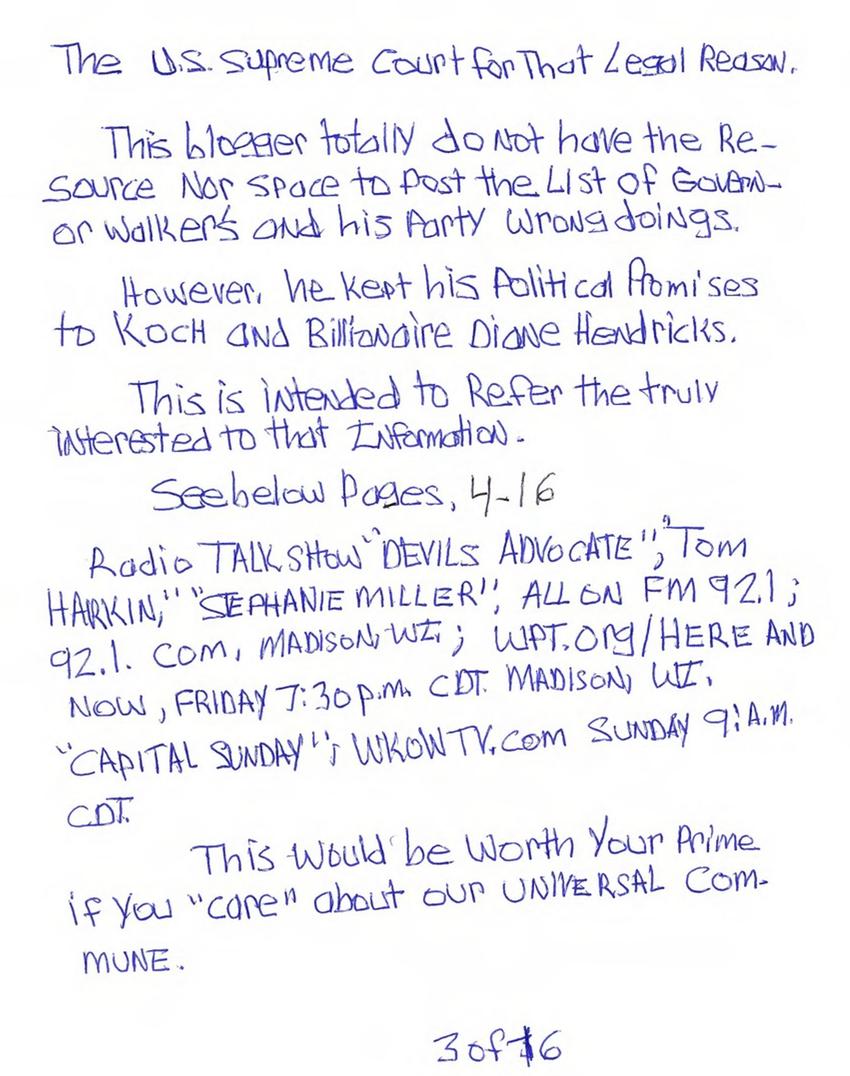 The U.S. Supreme Court for That Legal Reason.
This blogger totally do not have the Re-
source Nor space to post the List of Govern-
or Walker's and his Party wrongdoings.
However, he kept his Political Promises
to KOCH and Billionaire Diane Hendricks.
This is intended to Refer the truly
interested to that Information.
See below Pages, 4-16
Radio TALK SHOW "DEVILS ADVOCATE", "Tom
HARKIN," "SEPHANIE MILLER", ALL ON FM 92.1;
92.1. COM, MADISON, WI; WPT.Org/HERE AND
NOW, FRIDAY 7:30 p.m. CDT. MADISON, WI.
"CAPITAL SUNDAY"; WKOWTV.com SUNDAY 9: A.M.
CDT.
This Would be Worth Your Prime
if you "care" about our UNIVERSAL Com-
MUNE.
3 of 16